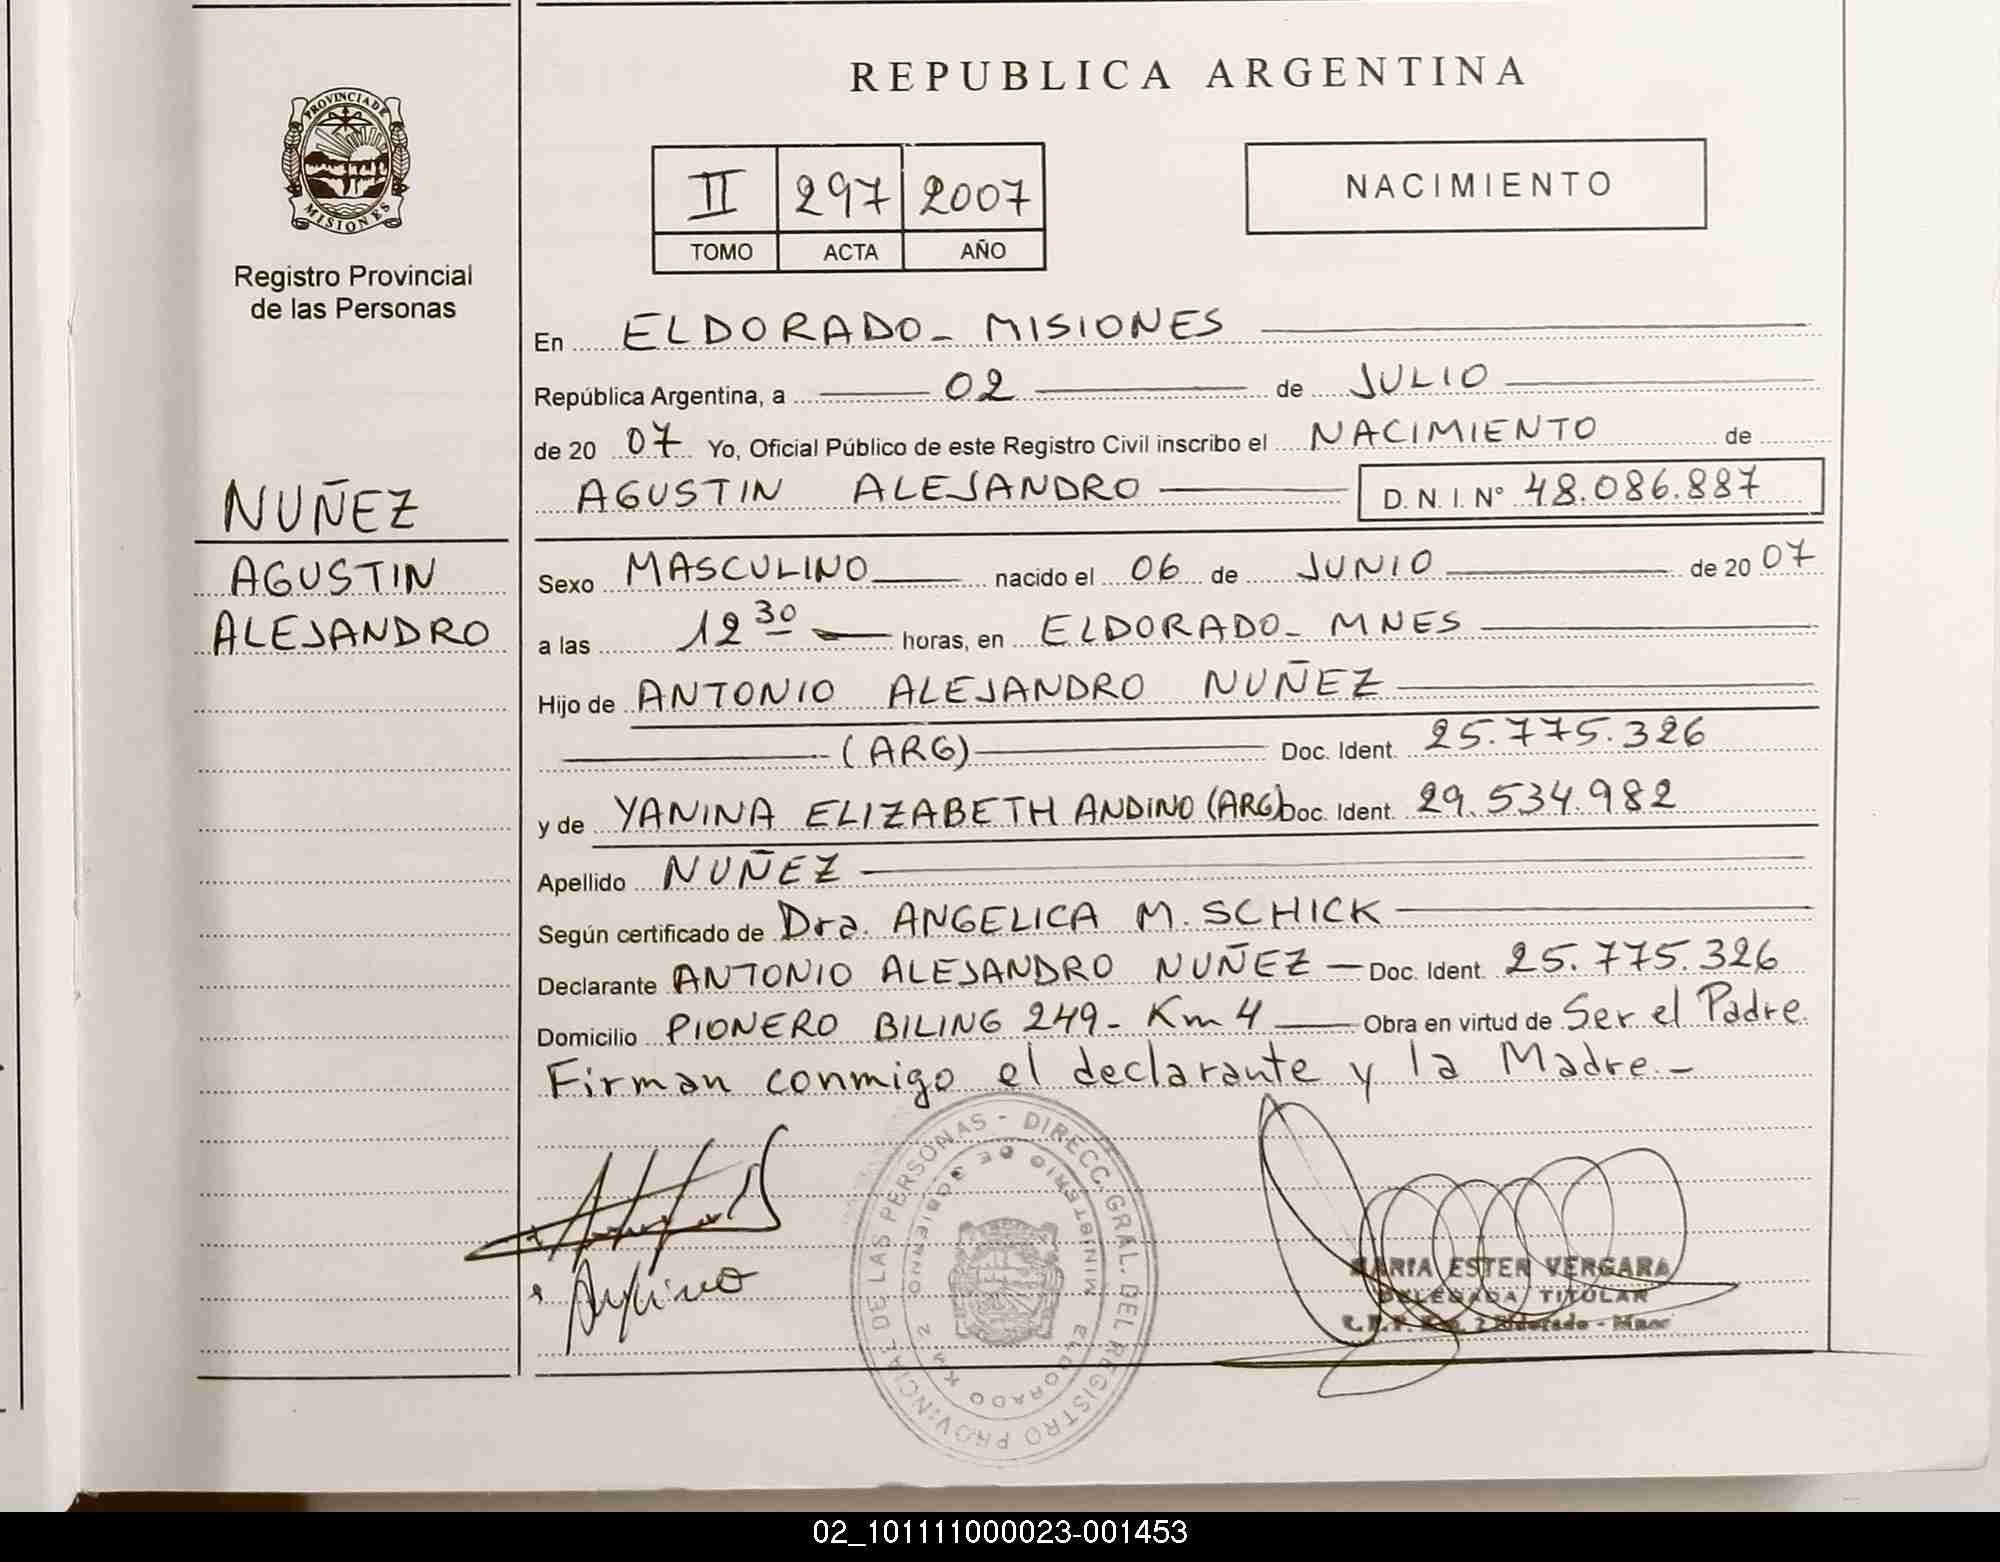 PROVINCIA DE
MISIONES
Registro Provincial
de las Personas
NUÑEZ
AGUSTIN
ALEJANDRO
REPUBLICA ARGENTINA
II 297 2007
TOMO ACTA AÑO
NACIMIENTO
En ELDORADO - MISIONES
República Argentina, a 02 de JULIO
de 20 07 Yo, Oficial Público de este Registro Civil inscribo el NACIMIENTO de
AGUSTIN ALEJANDRO D. N. I. N° 48.086.887
Sexo MASCULINO nacido el 06 de JUNIO de 20 07
a las 12 30 horas, en ELDORADO - MNES
Hijo de ANTONIO ALEJANDRO NUÑEZ
(ARG) Doc. Ident. 25.775.326
y de YANINA ELIZABETH ANDINO (ARG) Doc. Ident. 29.534.982
Apellido NUÑEZ
Según certificado de Dra. ANGELICA M. SCHICK
Declarante ANTONIO ALEJANDRO NUÑEZ - Doc. Ident. 25.775.326
Domicilio PIONERO BILING 249 - Km 4 Obra en virtud de Ser el Padre.
Firman conmigo el declarante y la Madre.-
DIRECC. GRAL. DEL REGISTRO PROVINCIAL DE LAS PERSONAS -
MINISTERIO DE GOBIERNO
ELDORADO KM 2
Andino
MARIA ESTER VERGARA
DELEGADA TITULAR
2 Eldorado -
02_101111000023-001453